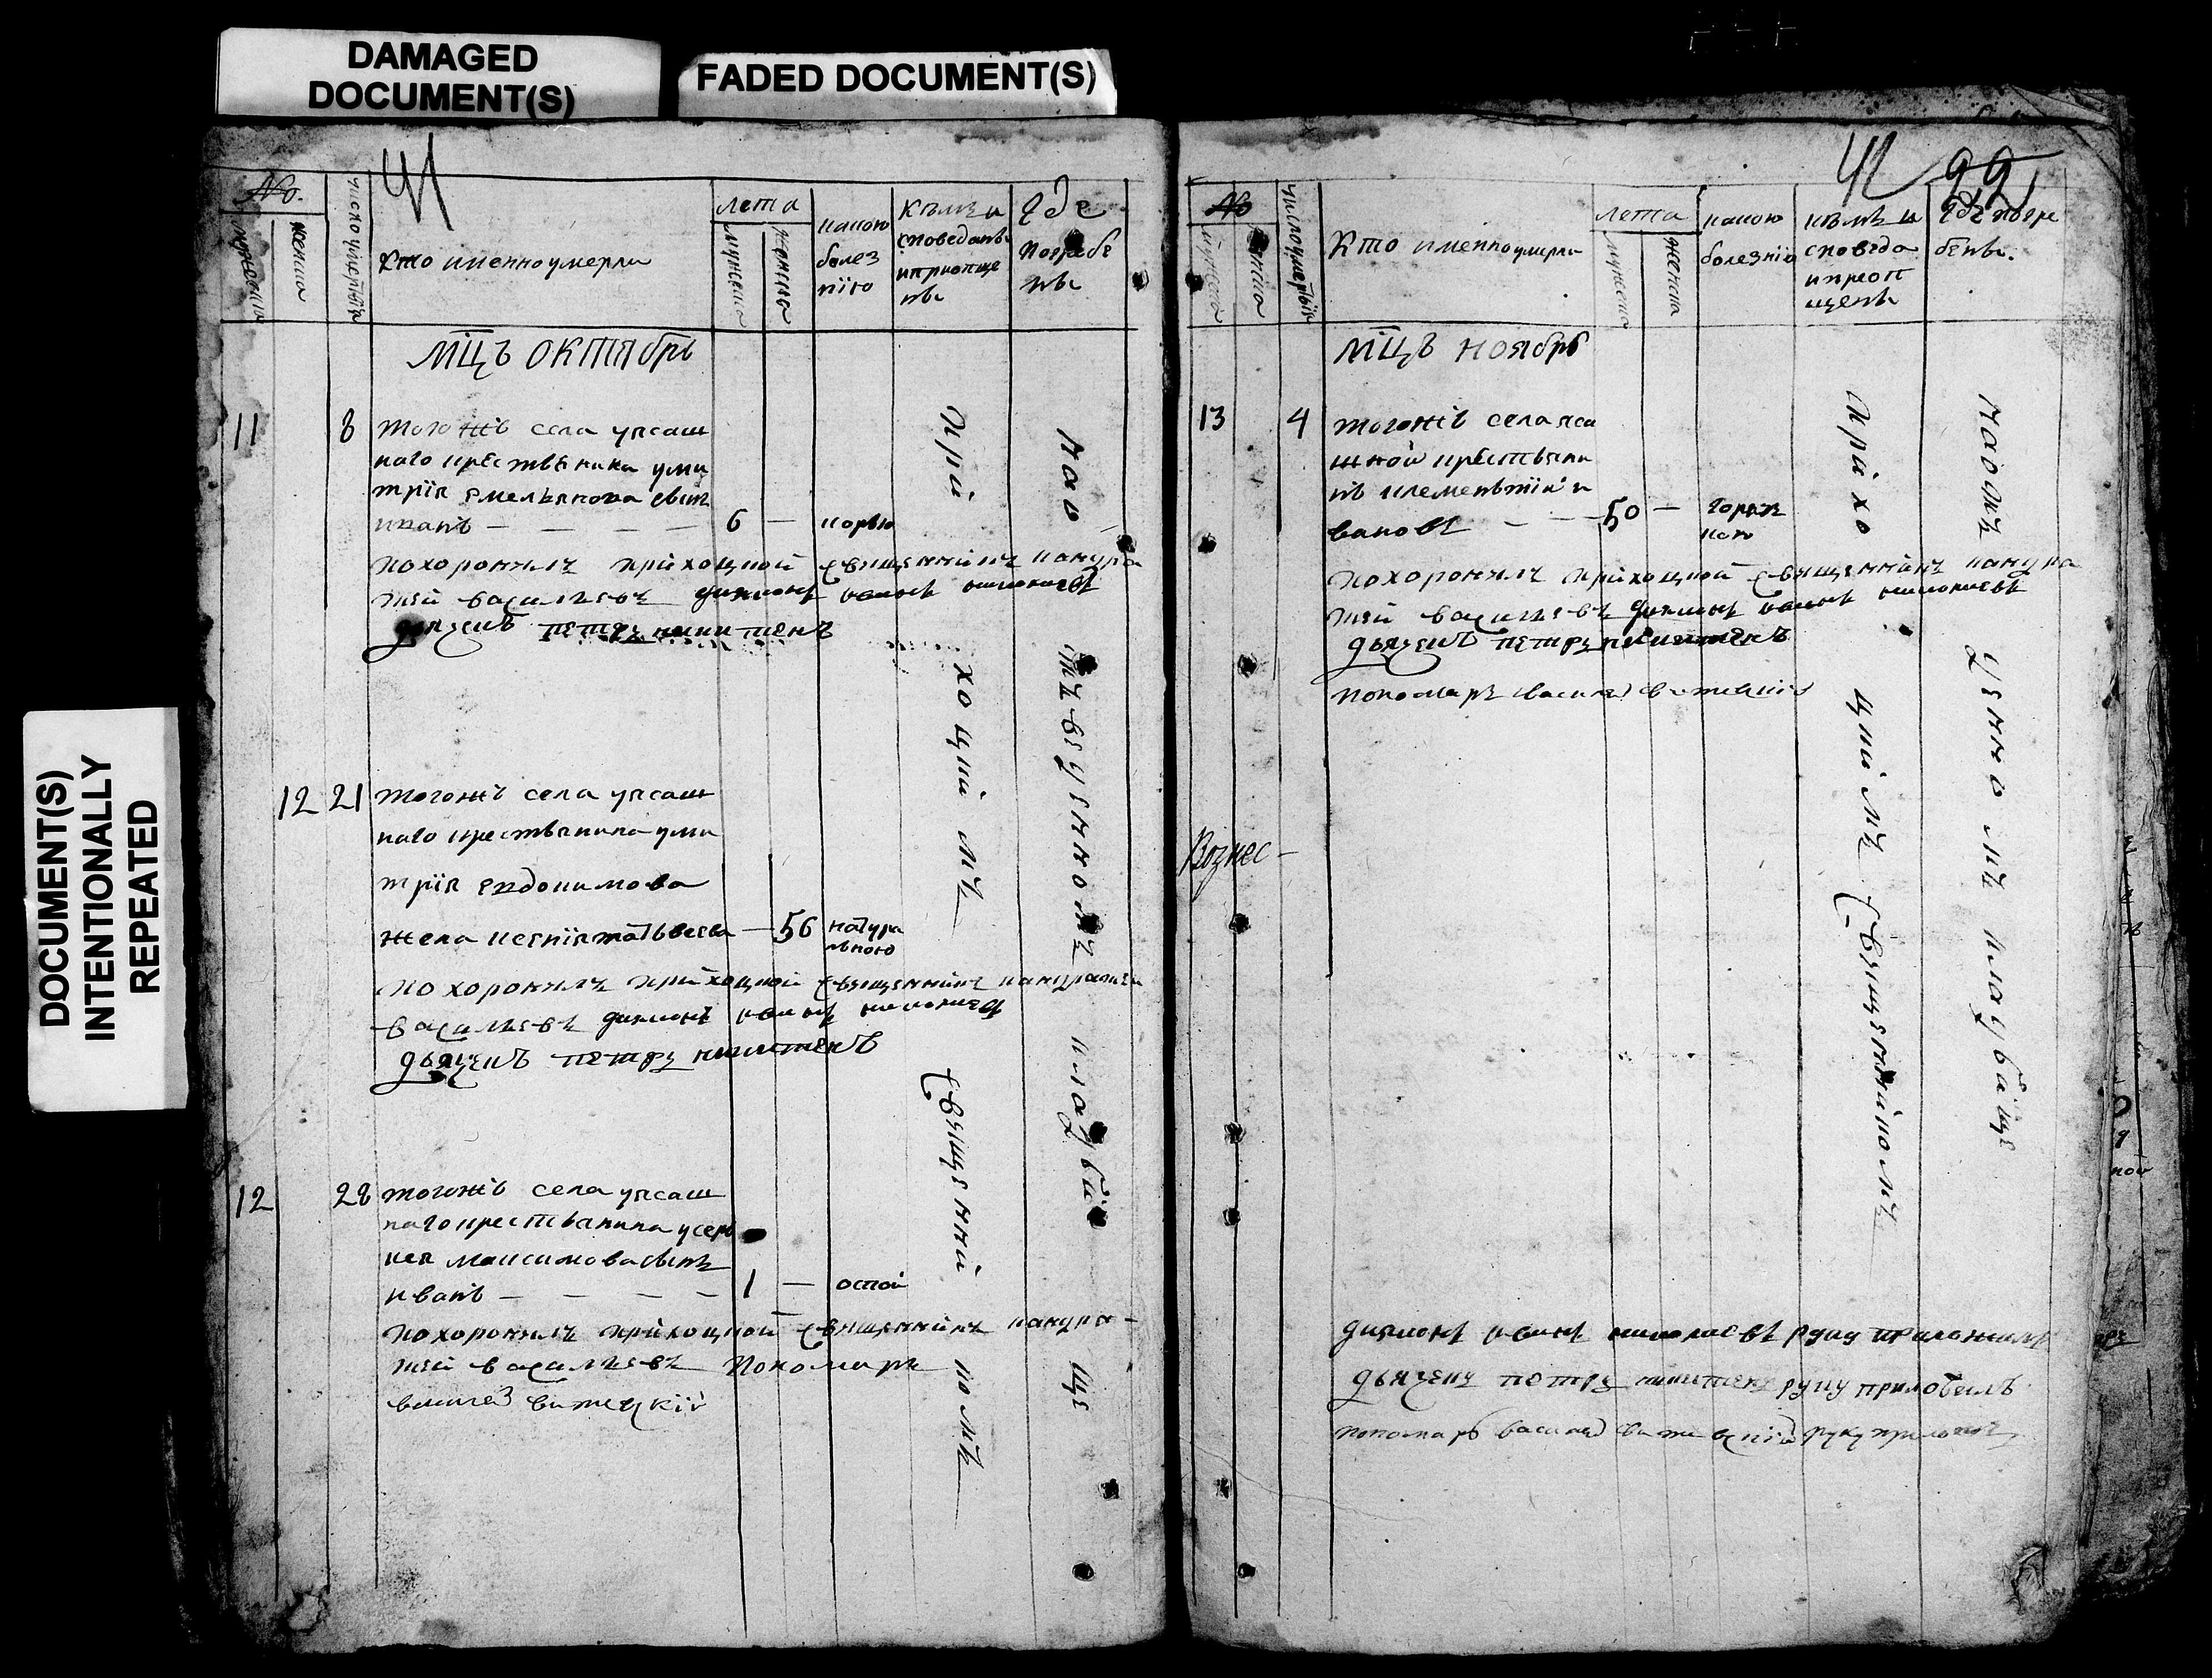 DAMAGED
DOCUMENT(S)
FADED DOCUMENT(S)
DOCUMENT(S)
INTENTIONALLY
REPEATED
41
No.
мужеска
женска
число умертвия
Кто именно умерли
лета
мужеска
женска
какою
болез
нію
Кѣмъ и
споведанъ
и приопще
нъ
Где
погребе
нъ
Мцъ октябрь
11
8
тогожъ села уясаш
наго крестьянина уми
трія емельянова сынъ
иванъ
6
корью
похоронилъ приходной священникъ кандра
тей васильевъ диаконъ иванъ николаевъ
дьячекъ петръ никитенъ
12
21
тогожъ села уясаш
наго крестьянина уми
трія евдокимова
жена ксенія матвеева
56
натура
льною
похоронилъ приходной священникъ кандратей
васильевъ диаконъ иванъ николаевъ
дьячекъ петръ никитенъ
12
28
тогожъ села уясаш
наго крестьянина усер
кея максимова сынъ
иванъ
1
оспой
похоронилъ приходной священникъ кандра
тей васильевъ пономарь
василей витецкій
приходнимъ священникомъ
на отведенномъ кладбище
42
99
No
мужеска
женска
число умертвия
Кто именно умерли
лета
мужеска
женска
какою
болезнію
кѣмъ и
споведа
и преоп
щенъ
Где погре
бенъ.
Мцъ ноябрь
13
4
тогожъ села яса
шной крестьяни
нъ клементій и
вановъ
50
горяч
кою
похоронилъ приходной священникъ кандра
тей васильевъ диаконъ иванъ николаевъ
дьячекъ петръ никитенъ
пономарь василей витецкій
Вознес
приходнимъ священникомъ
кладбище
диаконъ иванъ николаевъ руку приложилъ
дьячекъ петръ никитенъ руку приложилъ
пономарь василей витецкій руку приложилъ